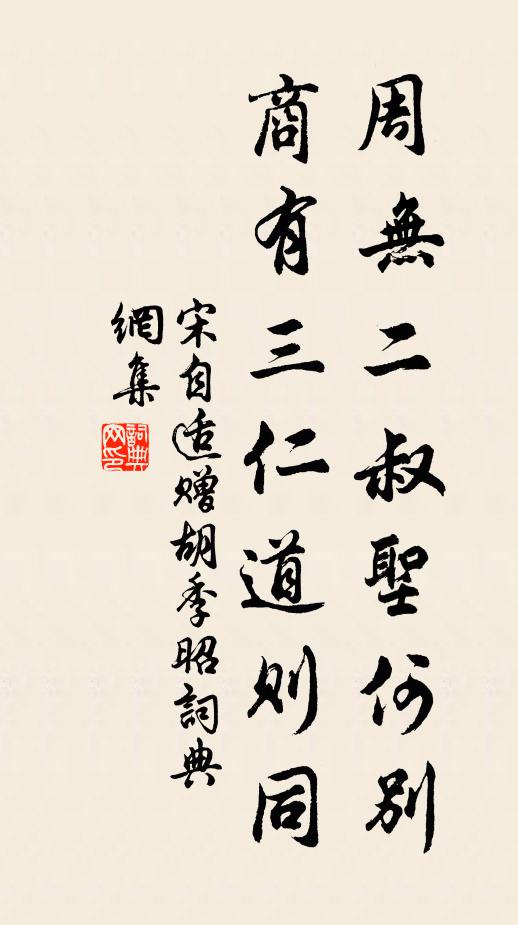 周無二叔聖何別
商有三仁道則同
宋自适贈胡季昭詞典
網集
詞典網印